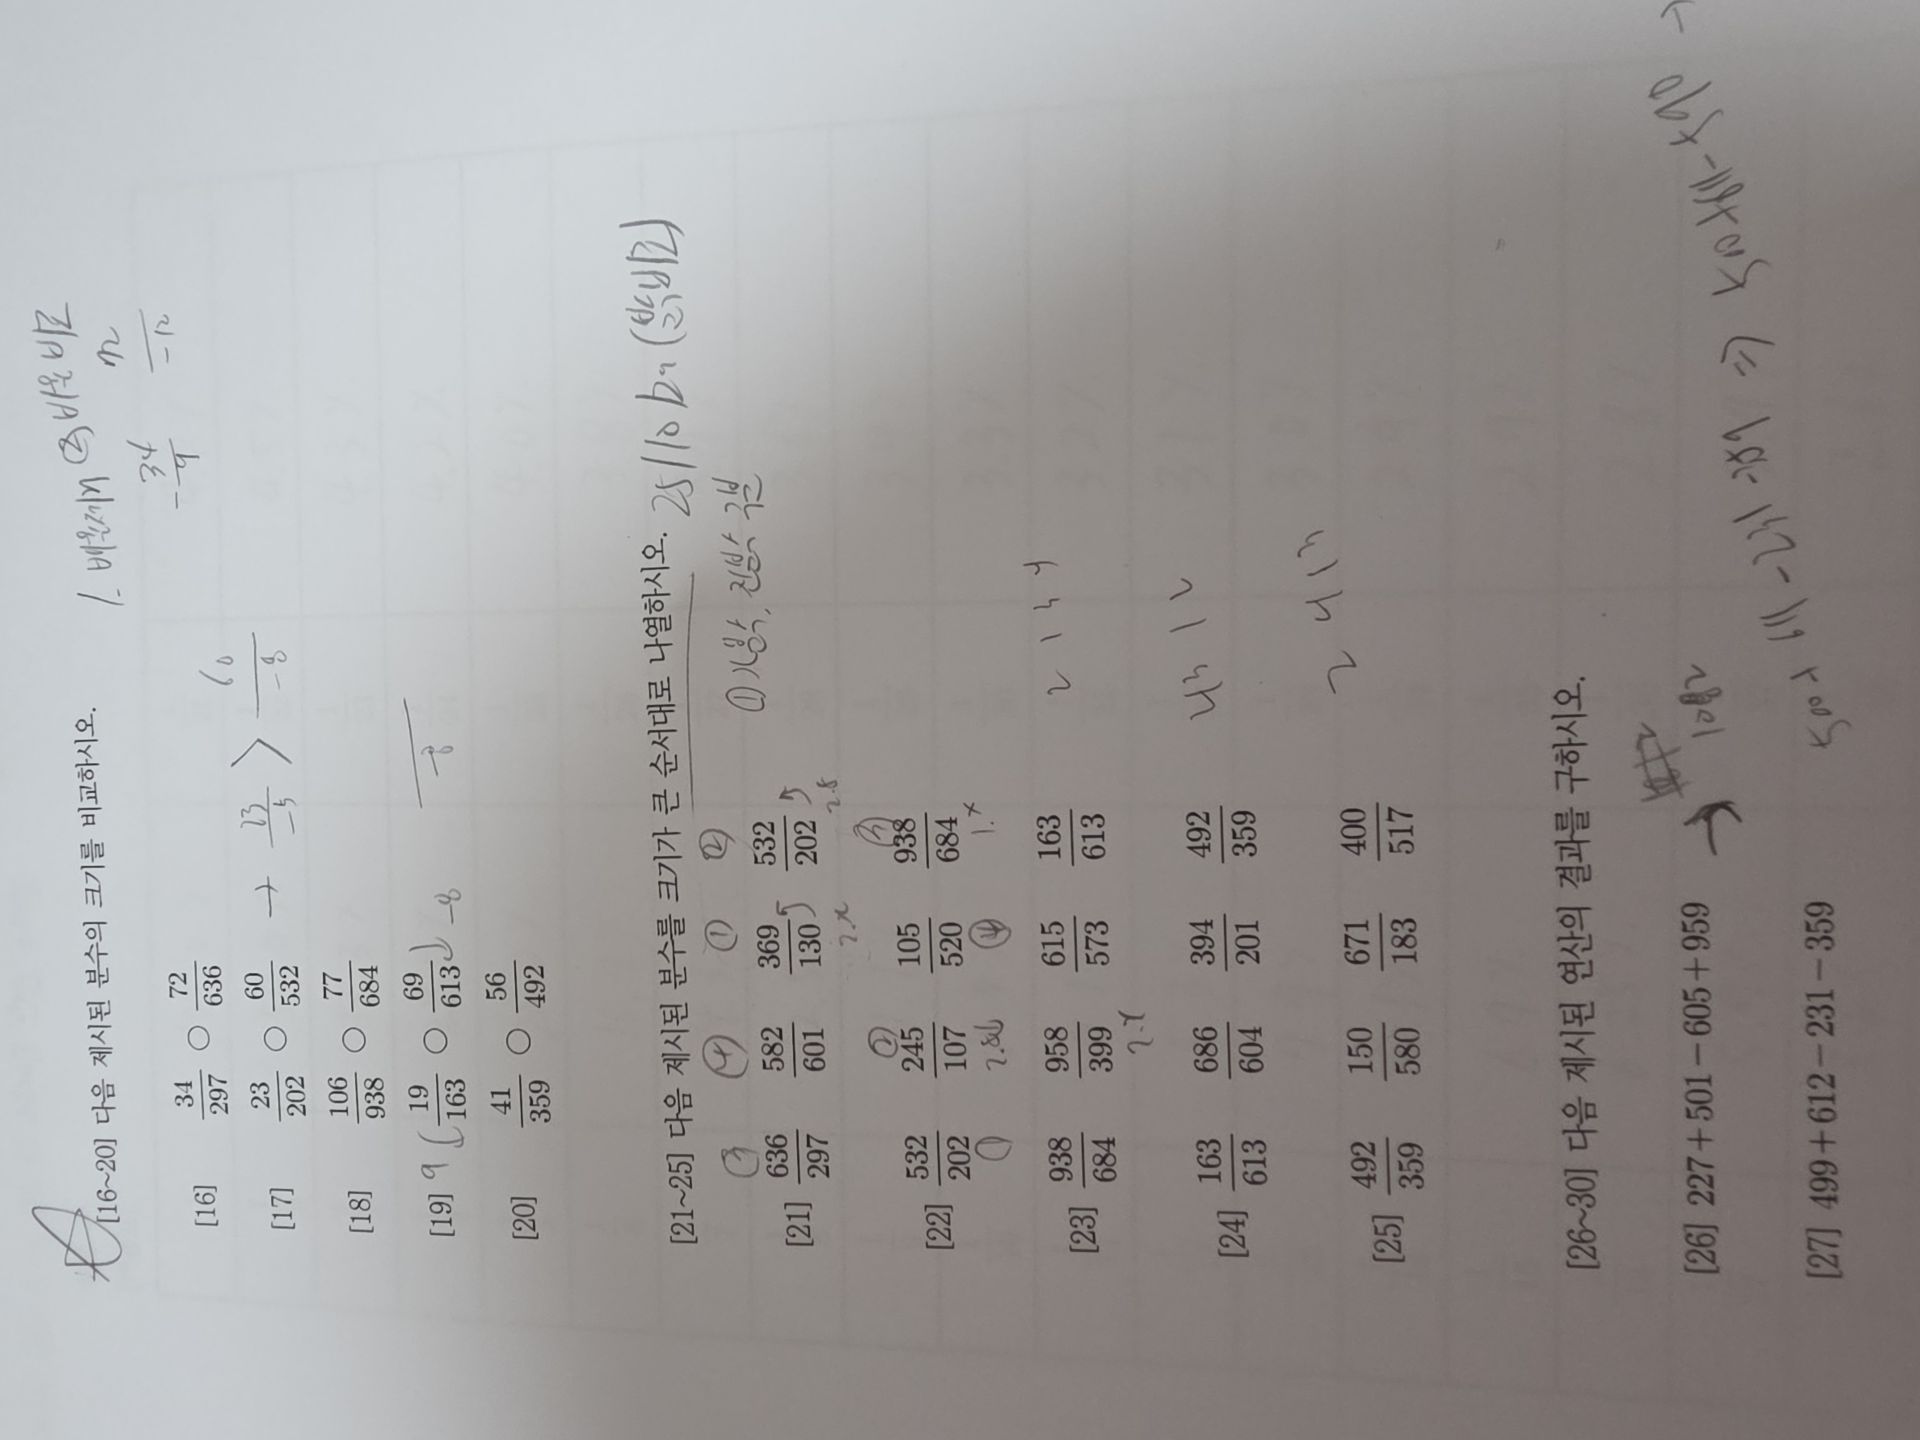 1. 배율제거 ② 배율비교
[16~20] 다음 제시된 분수의 크기를 비교하시오.
[16] 34/297 ○ 72/636
[17] 23/202 ○ 60/532 → 23/-5 > 60/-8
[18] 106/938 ○ 77/684
[19] 9 19/163 ○ 69/613 -8
[20] 41/359 ○ 56/492
[21~25] 다음 제시된 분수를 크기가 큰 순서대로 나열하시오. 25/10
③ ④ ① ②
[21] 636/297 582/601 369/130 532/202
2.x 2.8
② ③
[22] 532/202 245/107 105/520 938/684
① ④ 1.x
[23] 938/684 958/399 615/573 163/613 2 1 3 4
[24] 163/613 686/604 394/201 492/359 4 3 1 2
[25] 492/359 150/580 671/183 400/517 2 4 1 3
[26~30] 다음 제시된 연산의 결과를 구하시오.
[26] 227+501-605+959 → 1082
[27] 499+612-231-359